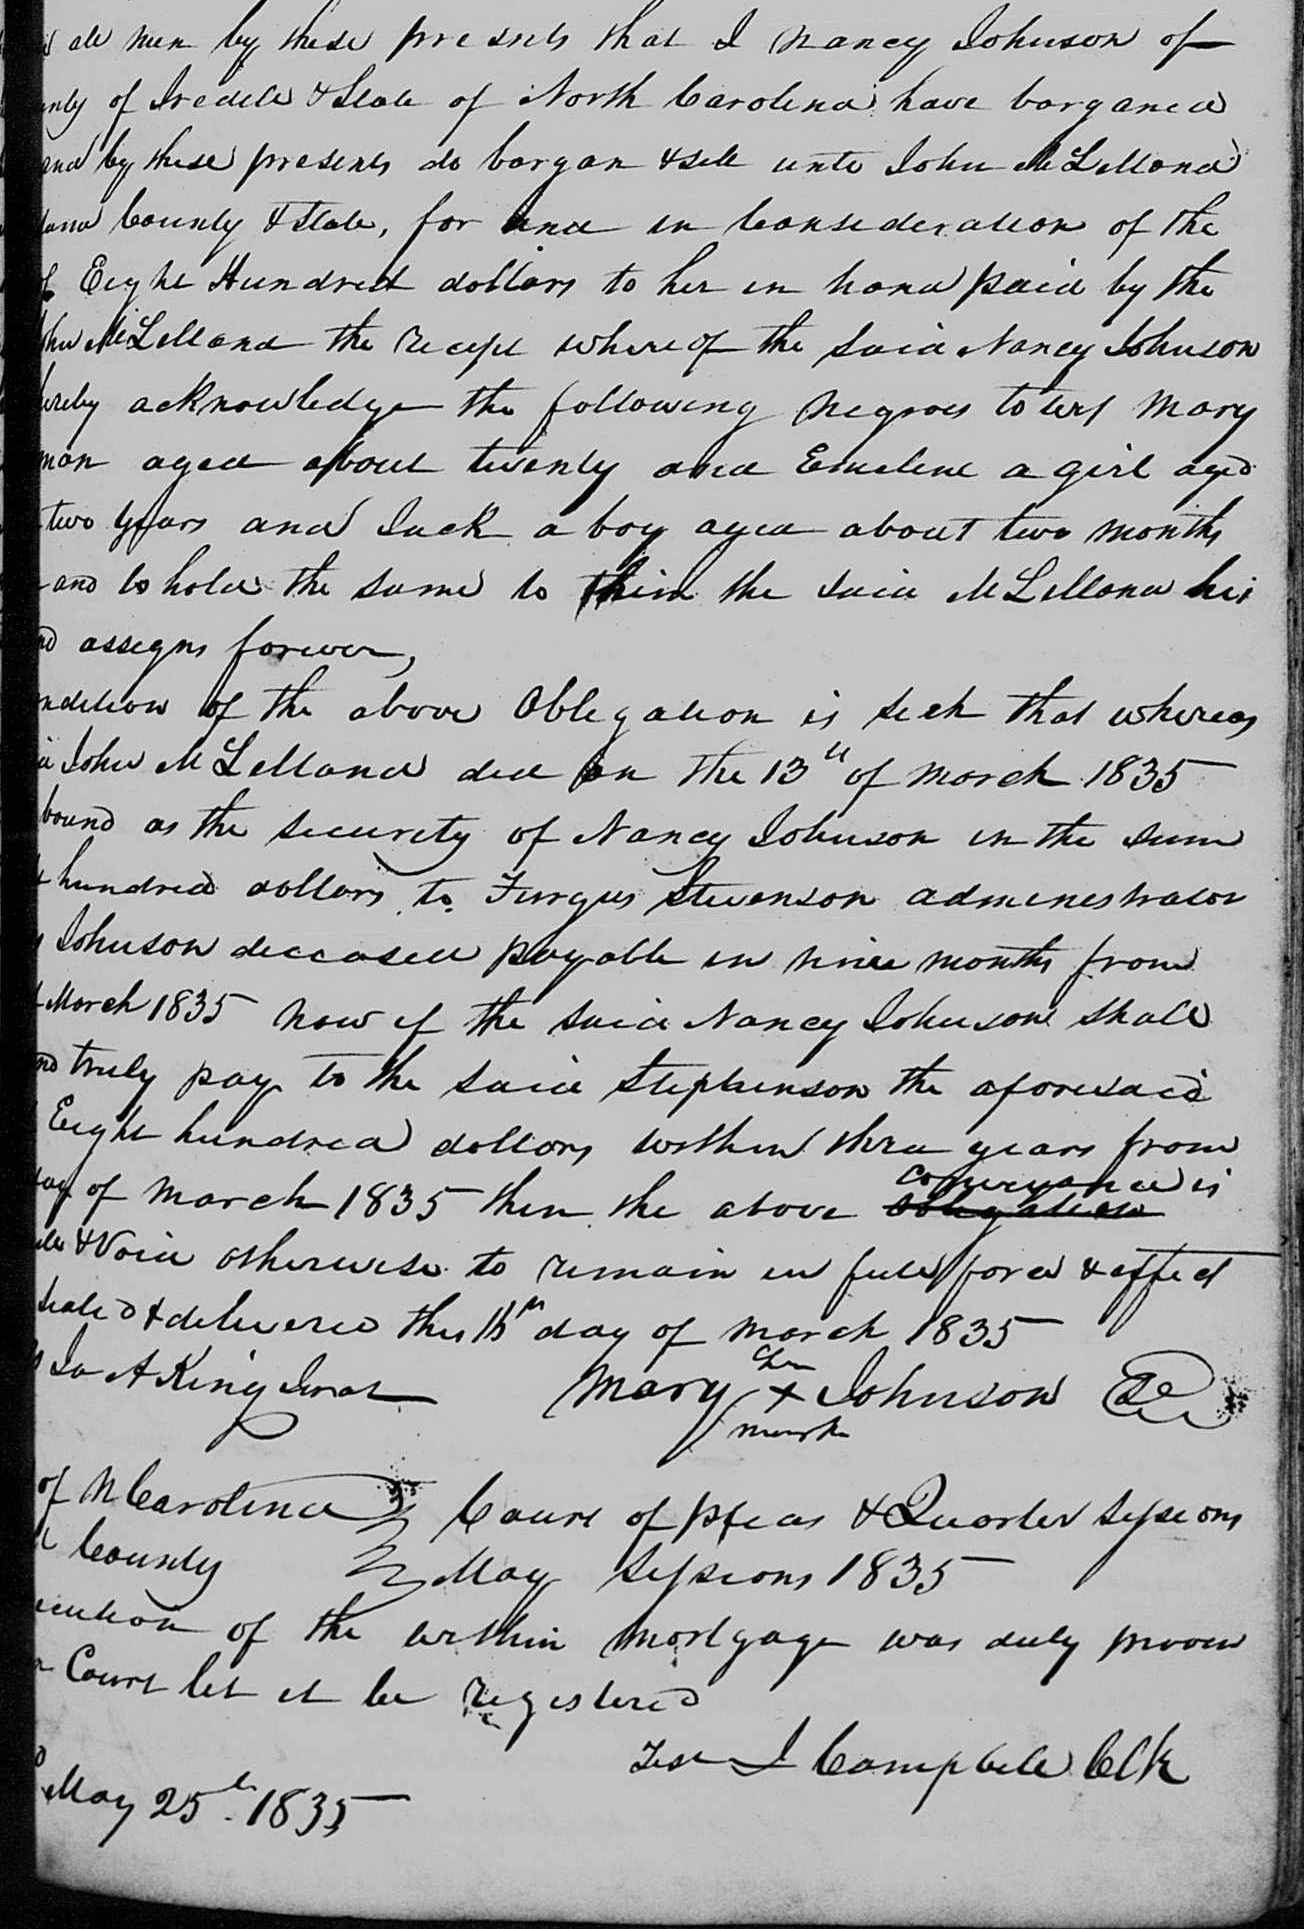 all men by these presents that I Nancy Johnson of
of Iredell & State of North Carolina have barganed
and by these presents do bargan & sell unto John McLelland
County & State, for and in Consideration of the
of Eight Hundred dollars to her in hand paid by the
McLelland the recept where of the said Nancy Johnson
acknowledge the following negroes to wit Mary
aged about twenty and Emeline a girl aged
two years and Jack a boy aged about two months
and to hold the same to him the said McLelland his
assigns forever,
of the above Obligation is such that whereas
John McLelland did on the 13th of march 1835
bound as the security of Nancy Johnson in the sum
hundred dollars to Furgus Stevenson administrator
Johnson deceased payable in nine months from
March 1835 now if the said Nancy Johnson shall
truly pay to the said Stephenson the aforesaid
Eight hundred dollars within three years from
of march 1835 then the above obligation conveyance is
& Void otherwise to remain in full force & effect
& delivered this day of march 1835
A King Jurat Mary her X mark Johnson
of N Carolina Court of pleas & Quarter Sessions
County May Sessions 1835
of the within mortgage was duly proven
Court let it be registered
Test J Campbell Clk
May 25th 1835